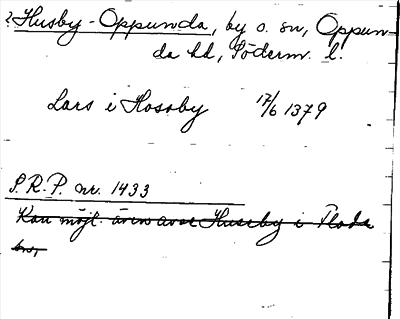 ? Husby-Oppunda, by o. sn, Oppun-
da hd, Söderm. l.
Lars i Hosaby 17/6 1379
S.R.P. nr. 1433
Kan möjl. även avse Husby i Floda
sn,